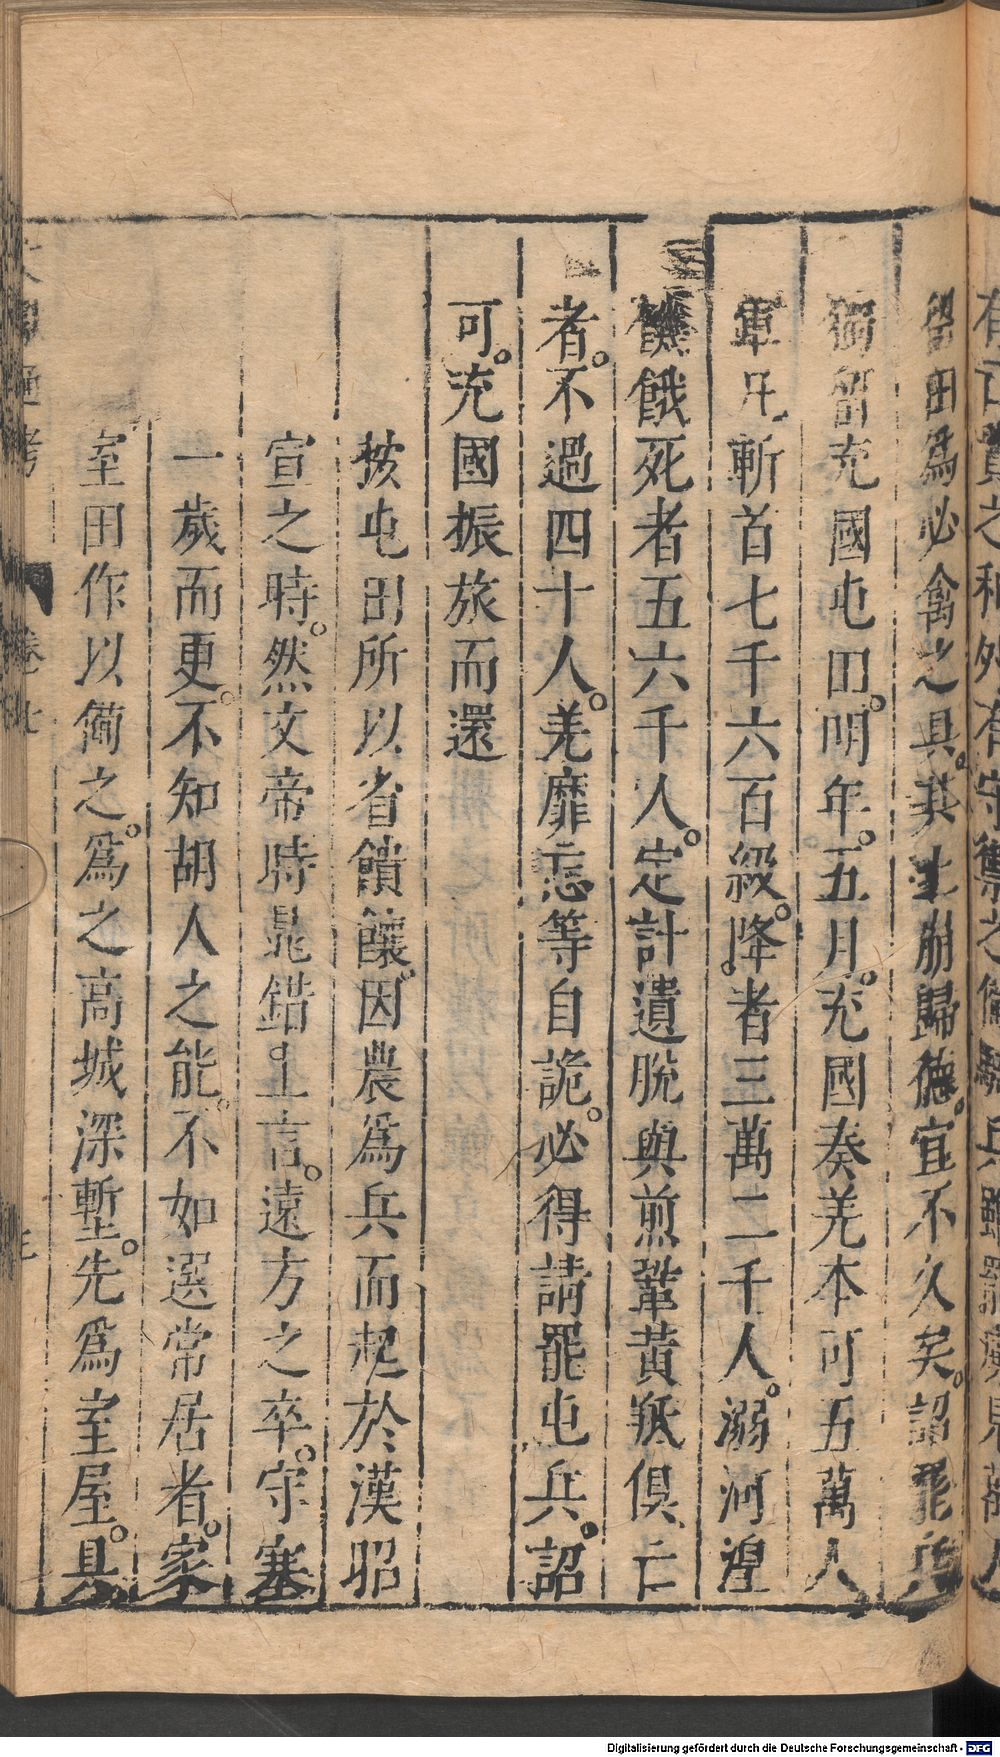 留田爲必禽之具。其土崩歸德。宜不久矣。詔罷兵
獨留充國屯田。明年。五月。充國奏羌本可五萬人
軍凡斬首七千六百級。降者三萬一千人。溺河湟
饑餓死者五六千人。定計遺脫與煎鞏黃羝俱亡
者。不過四十人。羌靡忘等自詭。必得請罷屯兵。詔
可。充國振旅而還
按屯田所以省饋饟。因農爲兵而起於漢昭
宣之時。然文帝時晁錯。上言。遠方之卒。守塞
一歲而更。不知胡人之能。不如選常居者。家
室田作以備之。爲之高城深塹。先爲室屋。具
文獻通考
卷七
Digitalisierung gefördert durch die Deutsche Forschungsgemeinschaft - DFG